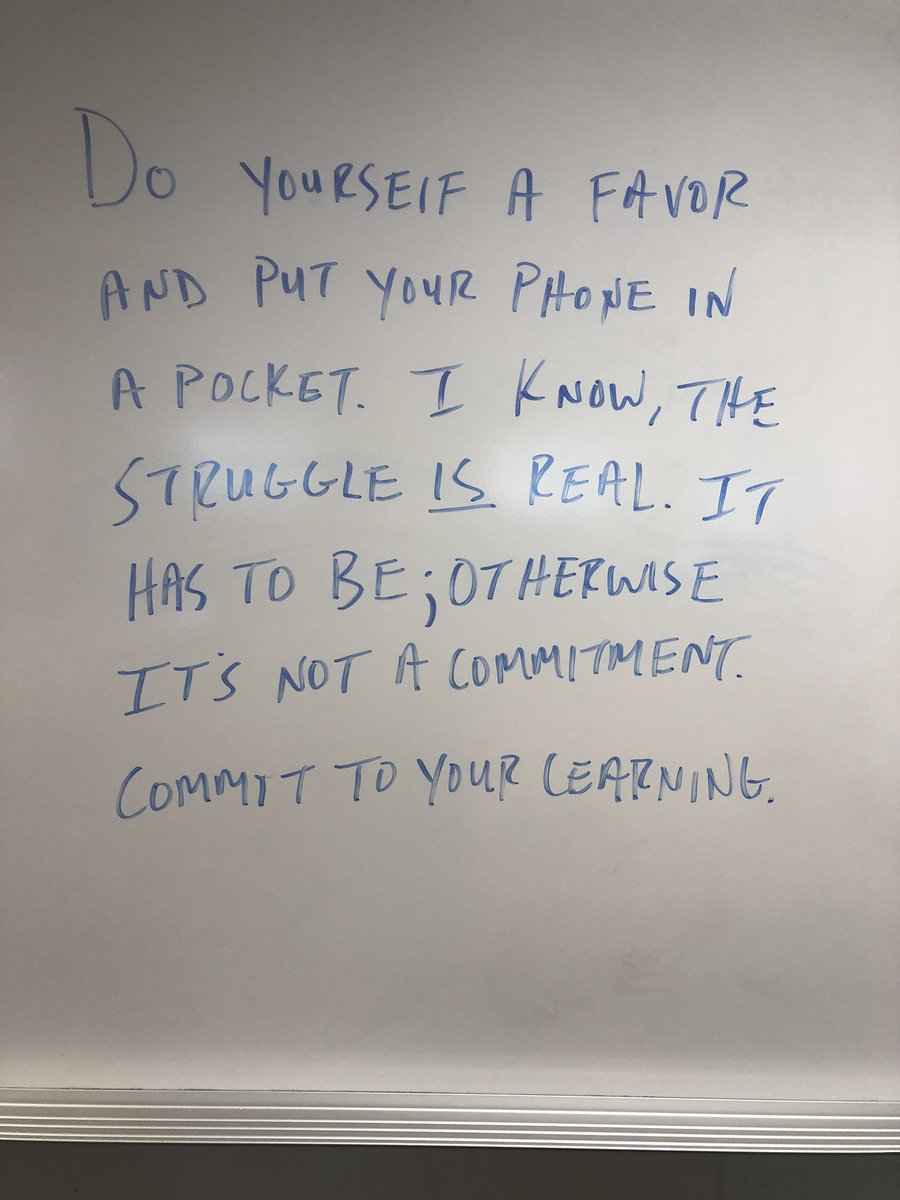 DO YOURSELF A FAVOR
AND PUT YOUR PHONE IN
A POCKET. I KNOW, THE
STRUGGLE IS REAL. IT
HAS TO BE; OTHERWISE
IT'S NOT A COMMITMENT.
COMMIT TO YOUR LEARNING.